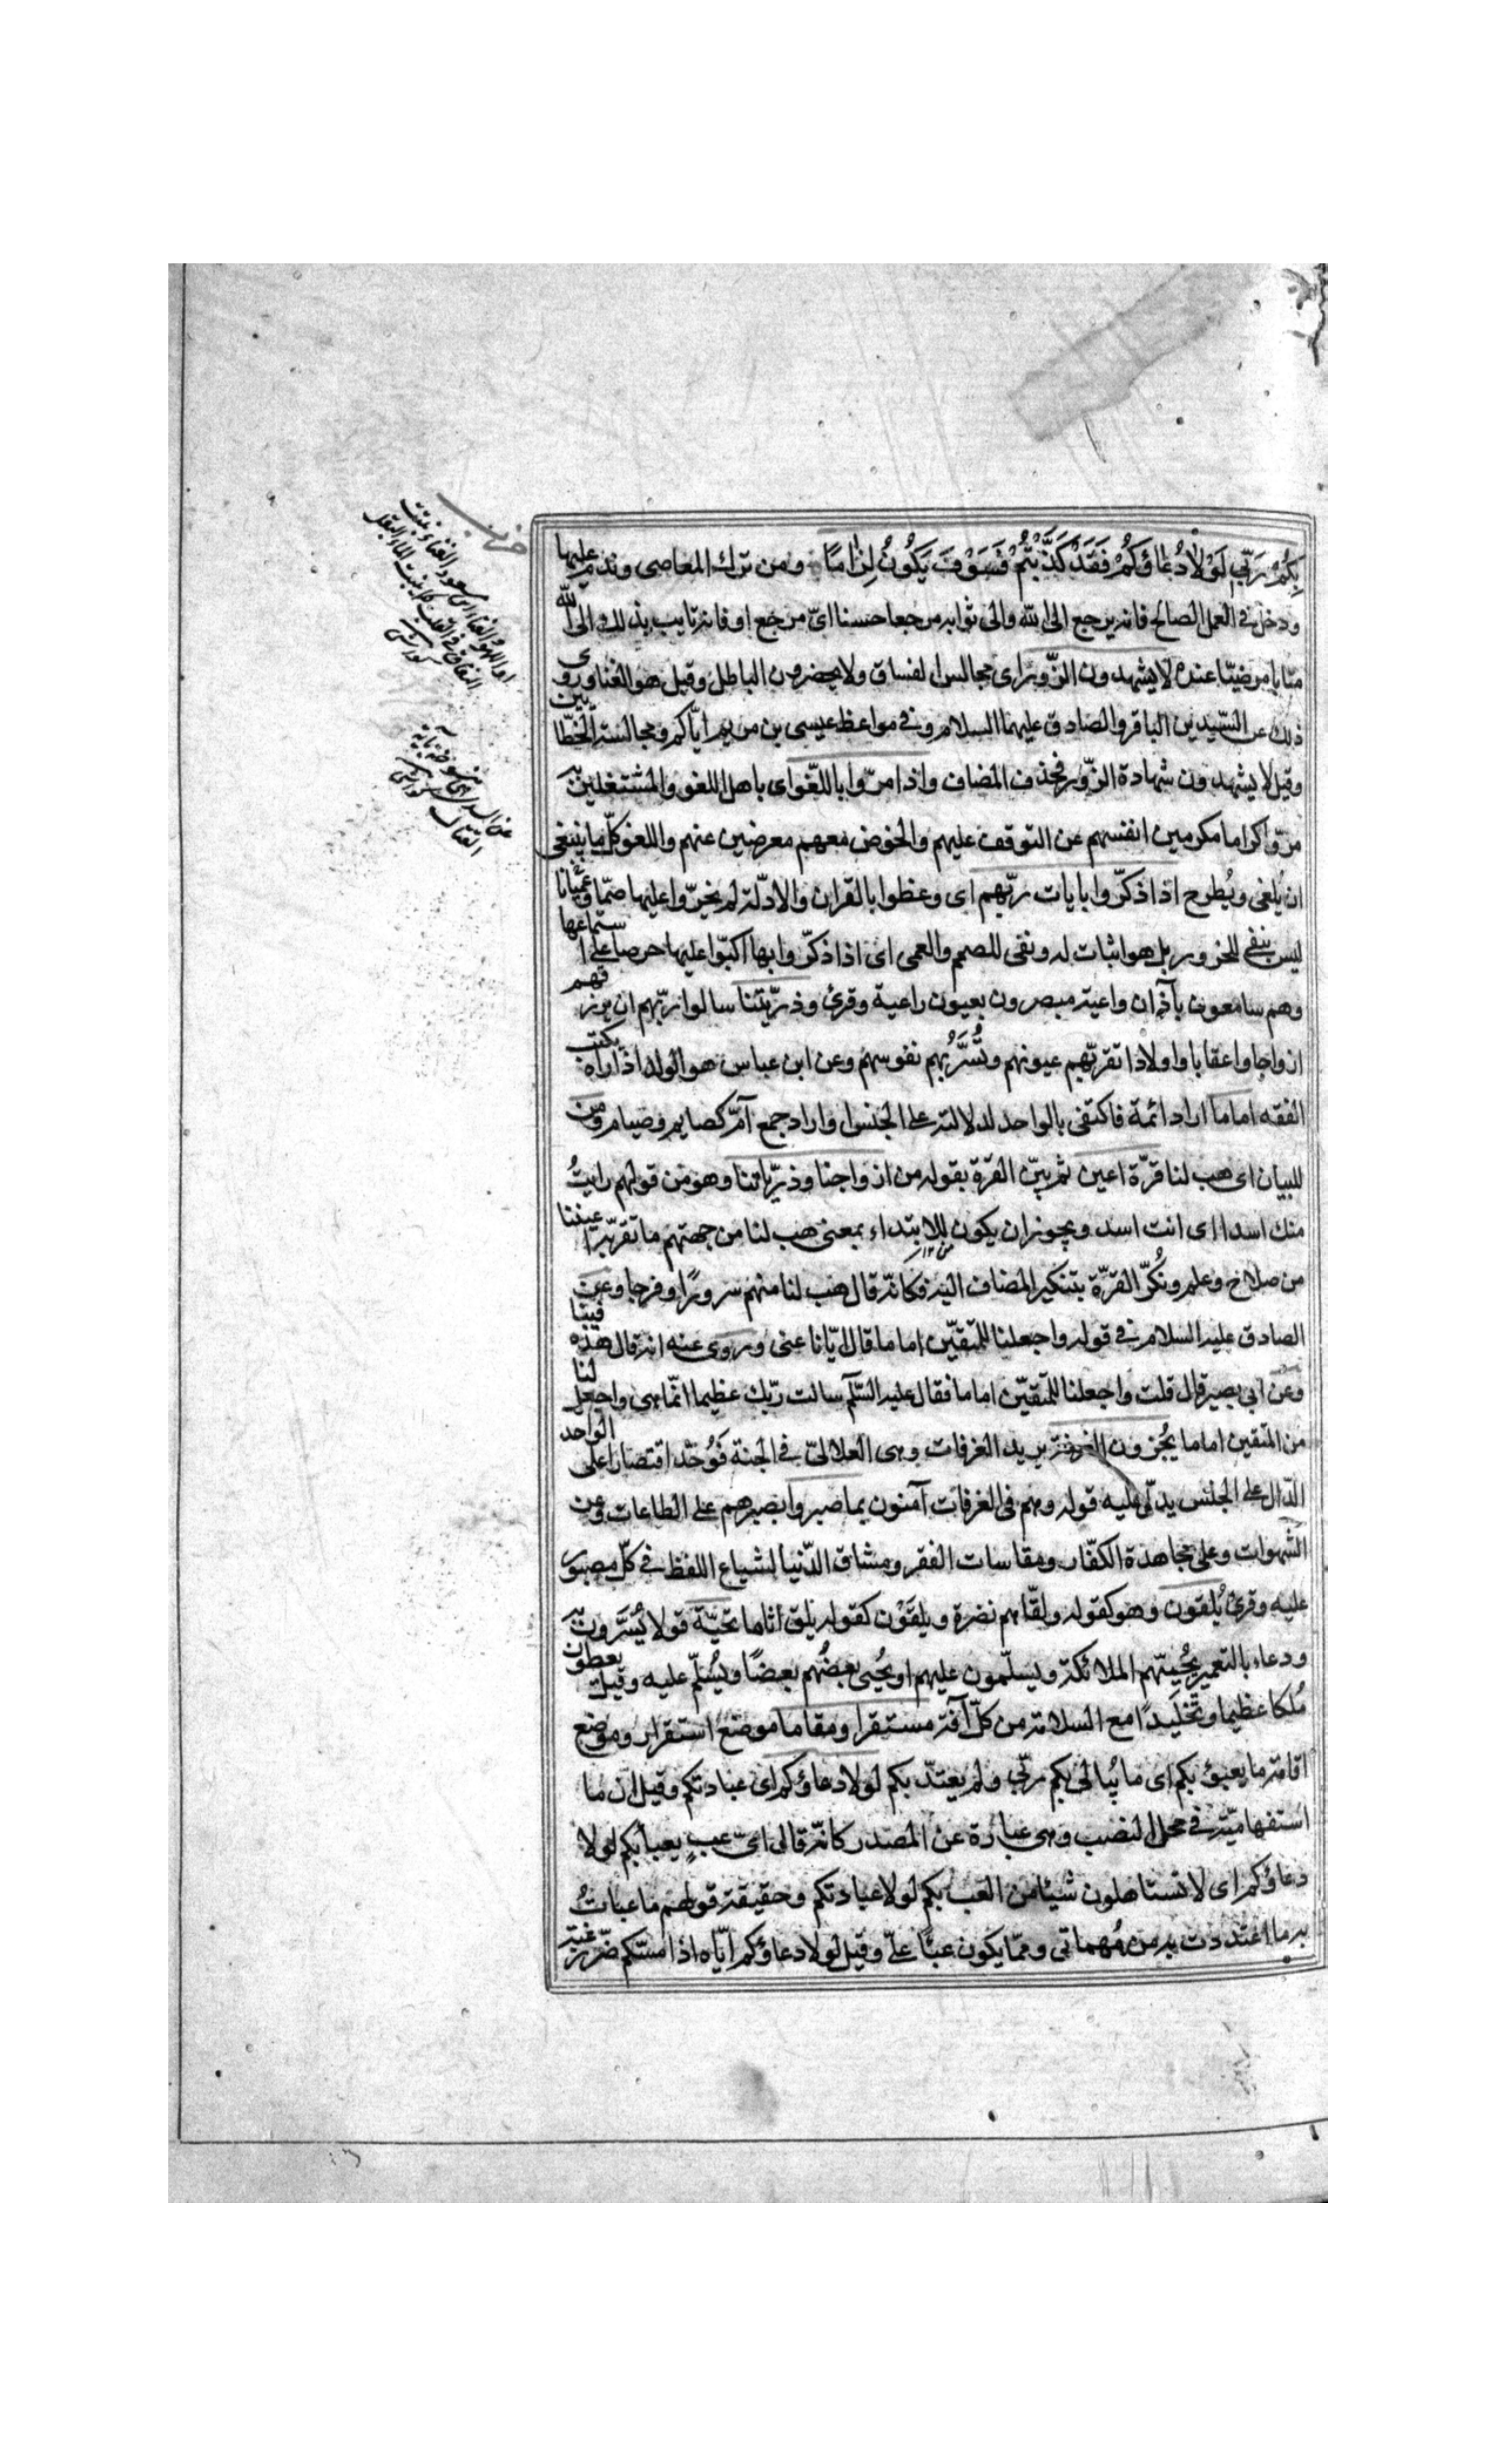 بِكُمْ رَبِّي لَوْلَا دُعَاؤُكُمْ فَقَدْ كَذَّبْتُمْ فَسَوْفَ يَكُونُ لِزَامًا ومن ترك المعاصى وندم عليها
ودخل فى العمل الصالح فانه يرجع الى الله والى ثوابه مرجعا حسنا اىّ مرجع او فانه تايب بذلك الى الله
متابا مرضيّا عنده لا يشهدون الزّور اى مجالس الفساق ولا يحضرون الباطل وقيل هو الغنا وروى
ذلك عن السّيدين الباقر والصادق عليهما السلام وفى مواعظ عيسى بن مريم ايّاكم ومجالسة الخطّايين
وقيل لا يشهدون شهادة الزّور فحذف المضاف واذا مرّوا باللّغو اى باهل اللغو والمشتغلين به
مرّوا كراما مكرمين انفسهم عن التوقف عليهم والخوض معهم معرضين عنهم واللغو كلّ ما ينبغى
ان يُلغى ويُطرح اذا ذكّروا بايات ربّهم اى وعظوا بالقران والادلّة لم يخرّوا عليها صمّا وعميانا
ليس بنفى للخرور بل هو اثبات له ونفى للصمم والعمى اى اذا ذكّروا بها اكبّوا عليها حرصا على استماعها
وهم سامعون بآذان واعية مبصرون بعيون راعية وقرئ وذرّيتنا سالوا ربّهم ان يرزقهم
ازواجا واعقابا واولادا تقربهم عيونهم وتُسَّرُّ بهم نفوسهم وعن ابن عباس هو الولد اذا راه يكتب
الفقه اماما اراد ائمة فاكتفى بالواحد لدلالته على الجنس او اراد جمع آمّ كصايم وصيام ومن
للبيان اى هب لنا قرّة اعين ثم بيّن القرّة بقوله من ازواجنا وذرّياتنا وهو من قولهم رايتُ
منك اسدا اى انت اسد ويجوز ان يكون للابتداء بمعنى هب لنا من جهتهم ما تقرّ به اعيننا
من صلاح وعلم ونُكّر القرّة بتنكير المضاف اليه فكانّه قال هب لنا منهم سرورًا وفرحا وعن
الصادق عليه السلام فى قوله واجعلنا للمتقيّن اماما قال ايّانا عنى وروى عنه انه قال هذه فينا
وعن ابى بصير قال قلت واجعلنا للمتقيّن اماما فقال عليه السّلم سالت ربّك عظيما انّما هى واجعل لنا
من المتقين اماما يُجزون الغرفة يريد الغرفات وهى العلالىّ فى الجنة فَوُحّد اقتصارا على الواحد
الدّال على الجنس يدلّ عليه قوله وهم فى الغرفات آمنون بما صبروا بصبرهم على الطاعات وعن
الشهوات وعلى مجاهدة الكفّار ومقاسات الفقر ومشاق الدّنيا لشياع اللفظ فى كلّ مصبور
عليه وقرئ يُلقون وهو كقوله ولقّاهم نضرة ويلقَوْن كقوله يلق اثاما تحيّة قولا يُسَرّون به
ودعاء بالتعمير يُحيّيهم الملائكة ويسلّمون عليهم او يُحيى بعضُهم بعضًا ويُسلّم عليه وقيل يعطون
مُلكا عظيما وتَخليدًا مع السلامة من كلّ آفة مستقرا ومقاما موضع استقرار وموضع
اقامة ما يعبؤ بكم اى ما يُبالى بكم ربّى ولم يعتدّ بكم لولا دعاؤكم اى عبادتكم وقيل ان ما
استفهاميّة فى محل النصب وهى عبارة عن المصدر كانّه قال اىّ عبٍ يعبا بكم لولا
دعاؤكم اى لا تستاهلون شيئا من العب بكم لولا عبادتكم وحقيقة قولهم ما عبات
به ما اعتددت به من مُهماتى وممّا يكون عبئًا علىّ وقيل لولا دعاؤكم ايّاه اذا مسّكم ضّر رغبة
او اللهو الغناء
ينبت
النفاق فى القلب كما ينبت الماء البقل
عن السدى منسوخة باية
القتال